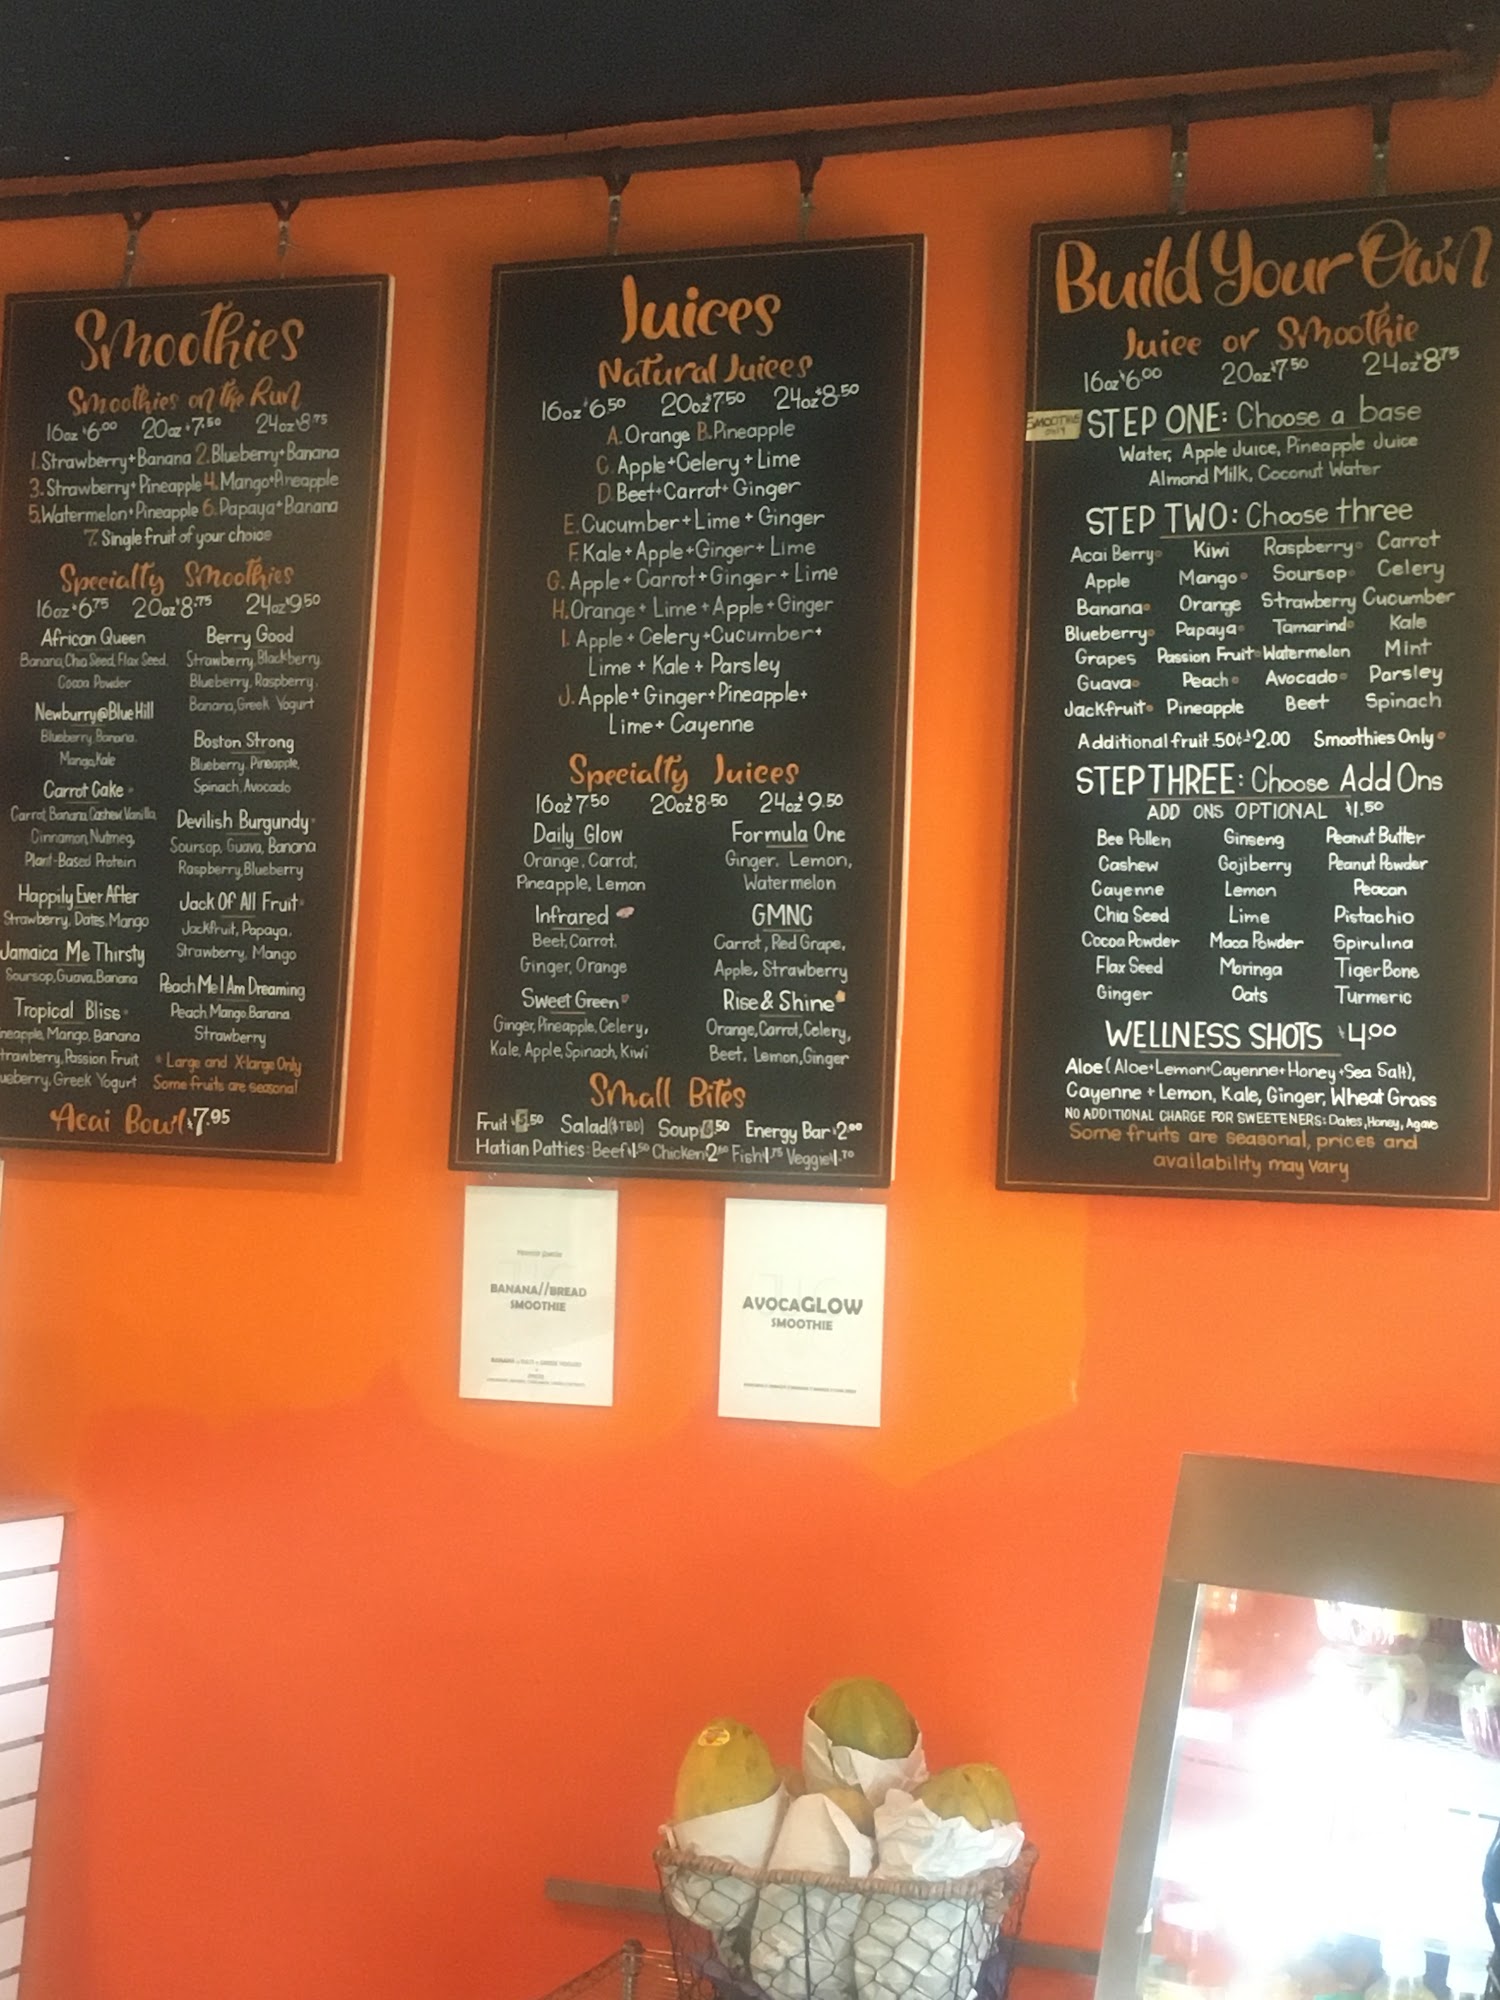 Smoothies
Smoothies on the Run
16oz $6.00 20oz $7.50 24oz $8.75
1. Strawberry+Banana 2. Blueberry+Banana
3. Strawberry+Pineapple 4. Mango+Pineapple
5. Watermelon+Pineapple 6. Papaya+Banana
7. Single fruit of your choice
Specialty Smoothies
16oz $6.75 20oz $8.75 24oz $9.50
African Queen
Banana, Chia Seed, Flax Seed,
Cocoa Powder
Newburry@Blue Hill
Blueberry, Banana,
Mango, Kale
Carrot Cake
Carrot, Banana, Cashew, Vanilla,
Cinnamon, Nutmeg,
Plant-Based Protein
Happily Ever After
Strawberry, Dates, Mango
Jamaica Me Thirsty
Soursop, Guava, Banana
Tropical Bliss
Mango, Banana
Passion Fruit,
Greek Yogurt
Berry Good
Strawberry, Blackberry,
Blueberry, Raspberry,
Banana, Greek Yogurt
Boston Strong
Blueberry, Pineapple,
Spinach, Avocado
Devilish Burgundy
Soursop, Guava, Banana
Raspberry, Blueberry
Jack Of All Fruit
Jackfruit, Papaya,
Strawberry, Mango
Peach Me I Am Dreaming
Peach, Mango, Banana,
Strawberry
* Large and X-large Only
Some fruits are seasonal
Acai Bowl $7.95
Juices
Natural Juices
16oz $6.50 20oz $7.50 24oz $8.50
A. Orange B. Pineapple
C. Apple+Celery+Lime
D. Beet+Carrot+Ginger
E. Cucumber+Lime+Ginger
F. Kale+Apple+Ginger+Lime
G. Apple+Carrot+Ginger+Lime
H. Orange+Lime+Apple+Ginger
I. Apple+Celery+Cucumber+
Lime+Kale+Parsley
J. Apple+Ginger+Pineapple+
Lime+Cayenne
Specialty Juices
16oz $7.50 20oz $8.50 24oz $9.50
Daily Glow
Orange, Carrot,
Pineapple, Lemon
Infrared
Beet, Carrot,
Ginger, Orange
Sweet Green
Ginger, Pineapple, Celery,
Kale, Apple, Spinach, Kiwi
Formula One
Ginger, Lemon,
Watermelon
GMNC
Carrot, Red Grape,
Apple, Strawberry
Rise & Shine
Orange, Carrot, Celery,
Beet, Lemon, Ginger
Small Bites
Fruit Salad($TBD) Soup Energy Bar $2.00
Hatian Patties: Beef $1.50 Chicken Fish $1.75 Veggie $1.70
BANANA//BREAD
SMOOTHIE
AVOCAGLOW
SMOOTHIE
Build Your Own
Juice or Smoothie
16oz $6.00 20oz $7.50 24oz $8.75
SMOOTHIE
only
STEP ONE: Choose a base
Water, Apple Juice, Pineapple Juice
Almond Milk, Coconut Water
STEP TWO: Choose three
Acai Berry Kiwi Raspberry Carrot
Apple Mango Soursop Celery
Banana Orange Strawberry Cucumber
Blueberry Papaya Tamarind Kale
Grapes Passion Fruit Watermelon Mint
Guava Peach Avocado Parsley
Jackfruit Pineapple Beet Spinach
Additional fruit .50¢-$2.00 Smoothies Only
STEP THREE: Choose Add Ons
ADD ONS OPTIONAL $1.50
Bee Pollen Ginseng Peanut Butter
Cashew Gojiberry Peanut Powder
Cayenne Lemon Peacan
Chia Seed Lime Pistachio
Cocoa Powder Maca Powder Spirulina
Flax Seed Moringa Tiger Bone
Ginger Oats Turmeric
WELLNESS SHOTS $4.00
Aloe(Aloe+Lemon+Cayenne+Honey+Sea Salt),
Cayenne + Lemon, Kale, Ginger, Wheat Grass
NO ADDITIONAL CHARGE FOR SWEETENERS: Dates, Honey, Agave
Some fruits are seasonal, prices and
availability may vary